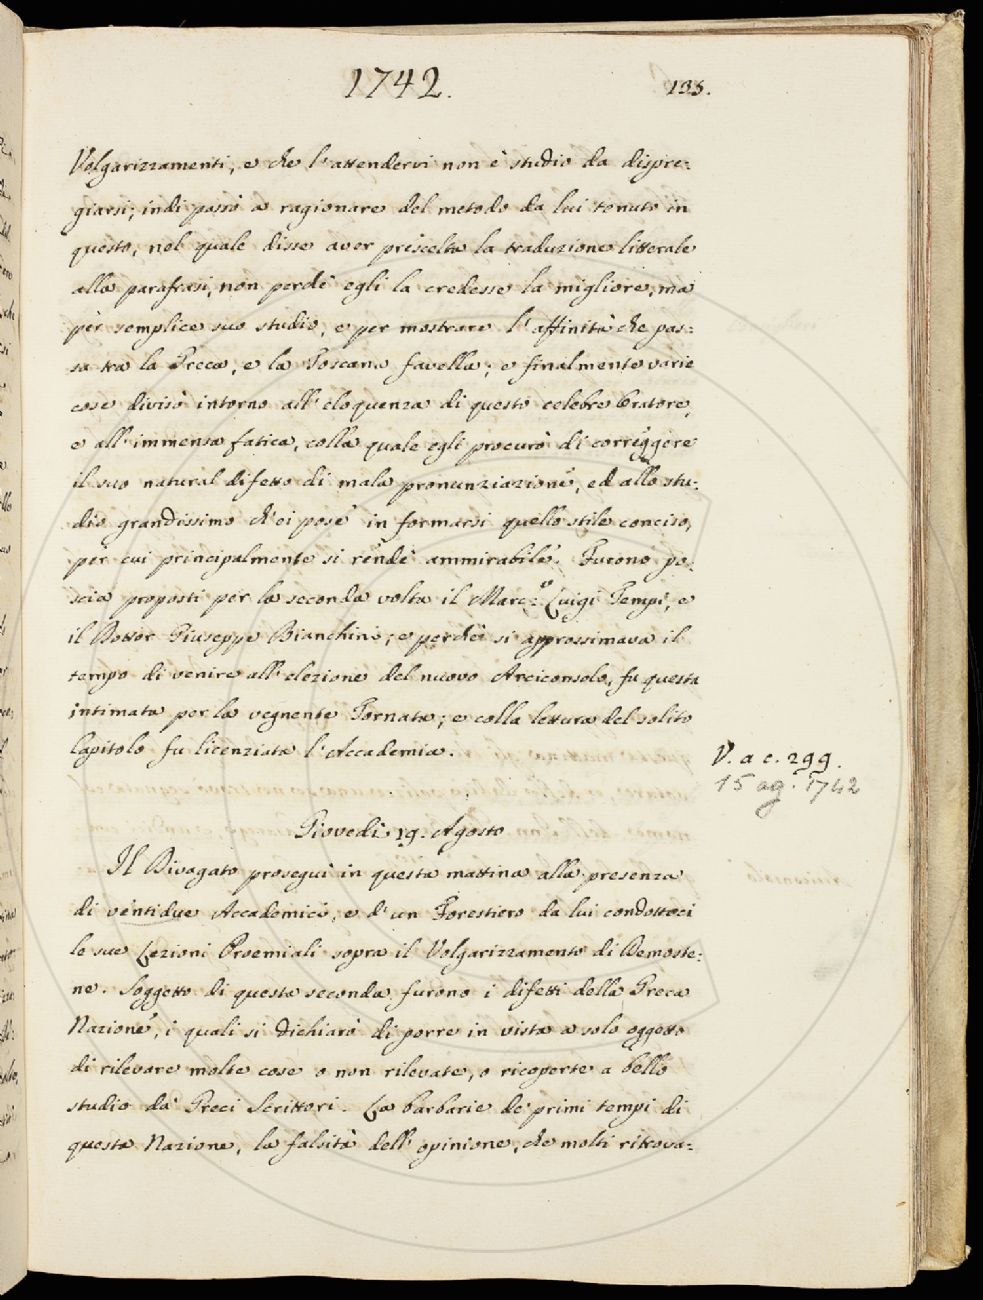 1742.
135.
Volgarizzamenti, e che l'attendervi non è studio da dispre:
giarsi; indi passò a ragionare del metodo da lui tenuto in
questo, nel quale disse aver prescelta la traduzione litterale
alla parafrasi, non perchè egli la credesse la migliore, ma
per semplice suo studio, e per mostrare l'affinità che pas:
sa tra la Greca, e la Toscana favella; e finalmente varie
cose divisò intorno all'eloquenza di questo celebre Oratore,
e all'immensa fatica, colla quale egli procurò di correggere
il suo natural difetto di mala pronunziazione, ed allo stu:
dio grandissimo ch'ei pose in formarsi quello stile conciso,
per cui principalmente si rendè ammirabile. Furono po:
scia proposti per la seconda volta il March.e Luigi Tempi, e
il Dottor Giuseppe Bianchini; e perchè si approssimava il
tempo di venire all'elezione del nuovo Arciconsolo, fu questa
intimata per la vegnente Tornata; e colla lettura del solito
Capitolo fu licenziata l'Accademia.
V. a c. 299.
15 ag. 1742
Giovedì 19. Agosto
Il Divagato proseguì in questa mattina alla presenza
di ventidue Accademici, e d'un Forestiero da lui condottoci
le sue Lezioni Proemiali sopra il Volgarizzamento di Demoste:
ne. Soggetto di questa seconda furono i difetti della Greca
Nazione, i quali si dichiarò di porre in vista a solo oggetto
di rilevare molte cose o non rilevate, o ricoperte a bello
studio da' Greci Scrittori. La barbarie de' primi tempi di
questa Nazione, la falsità dell'opinione, che molti ritrova: